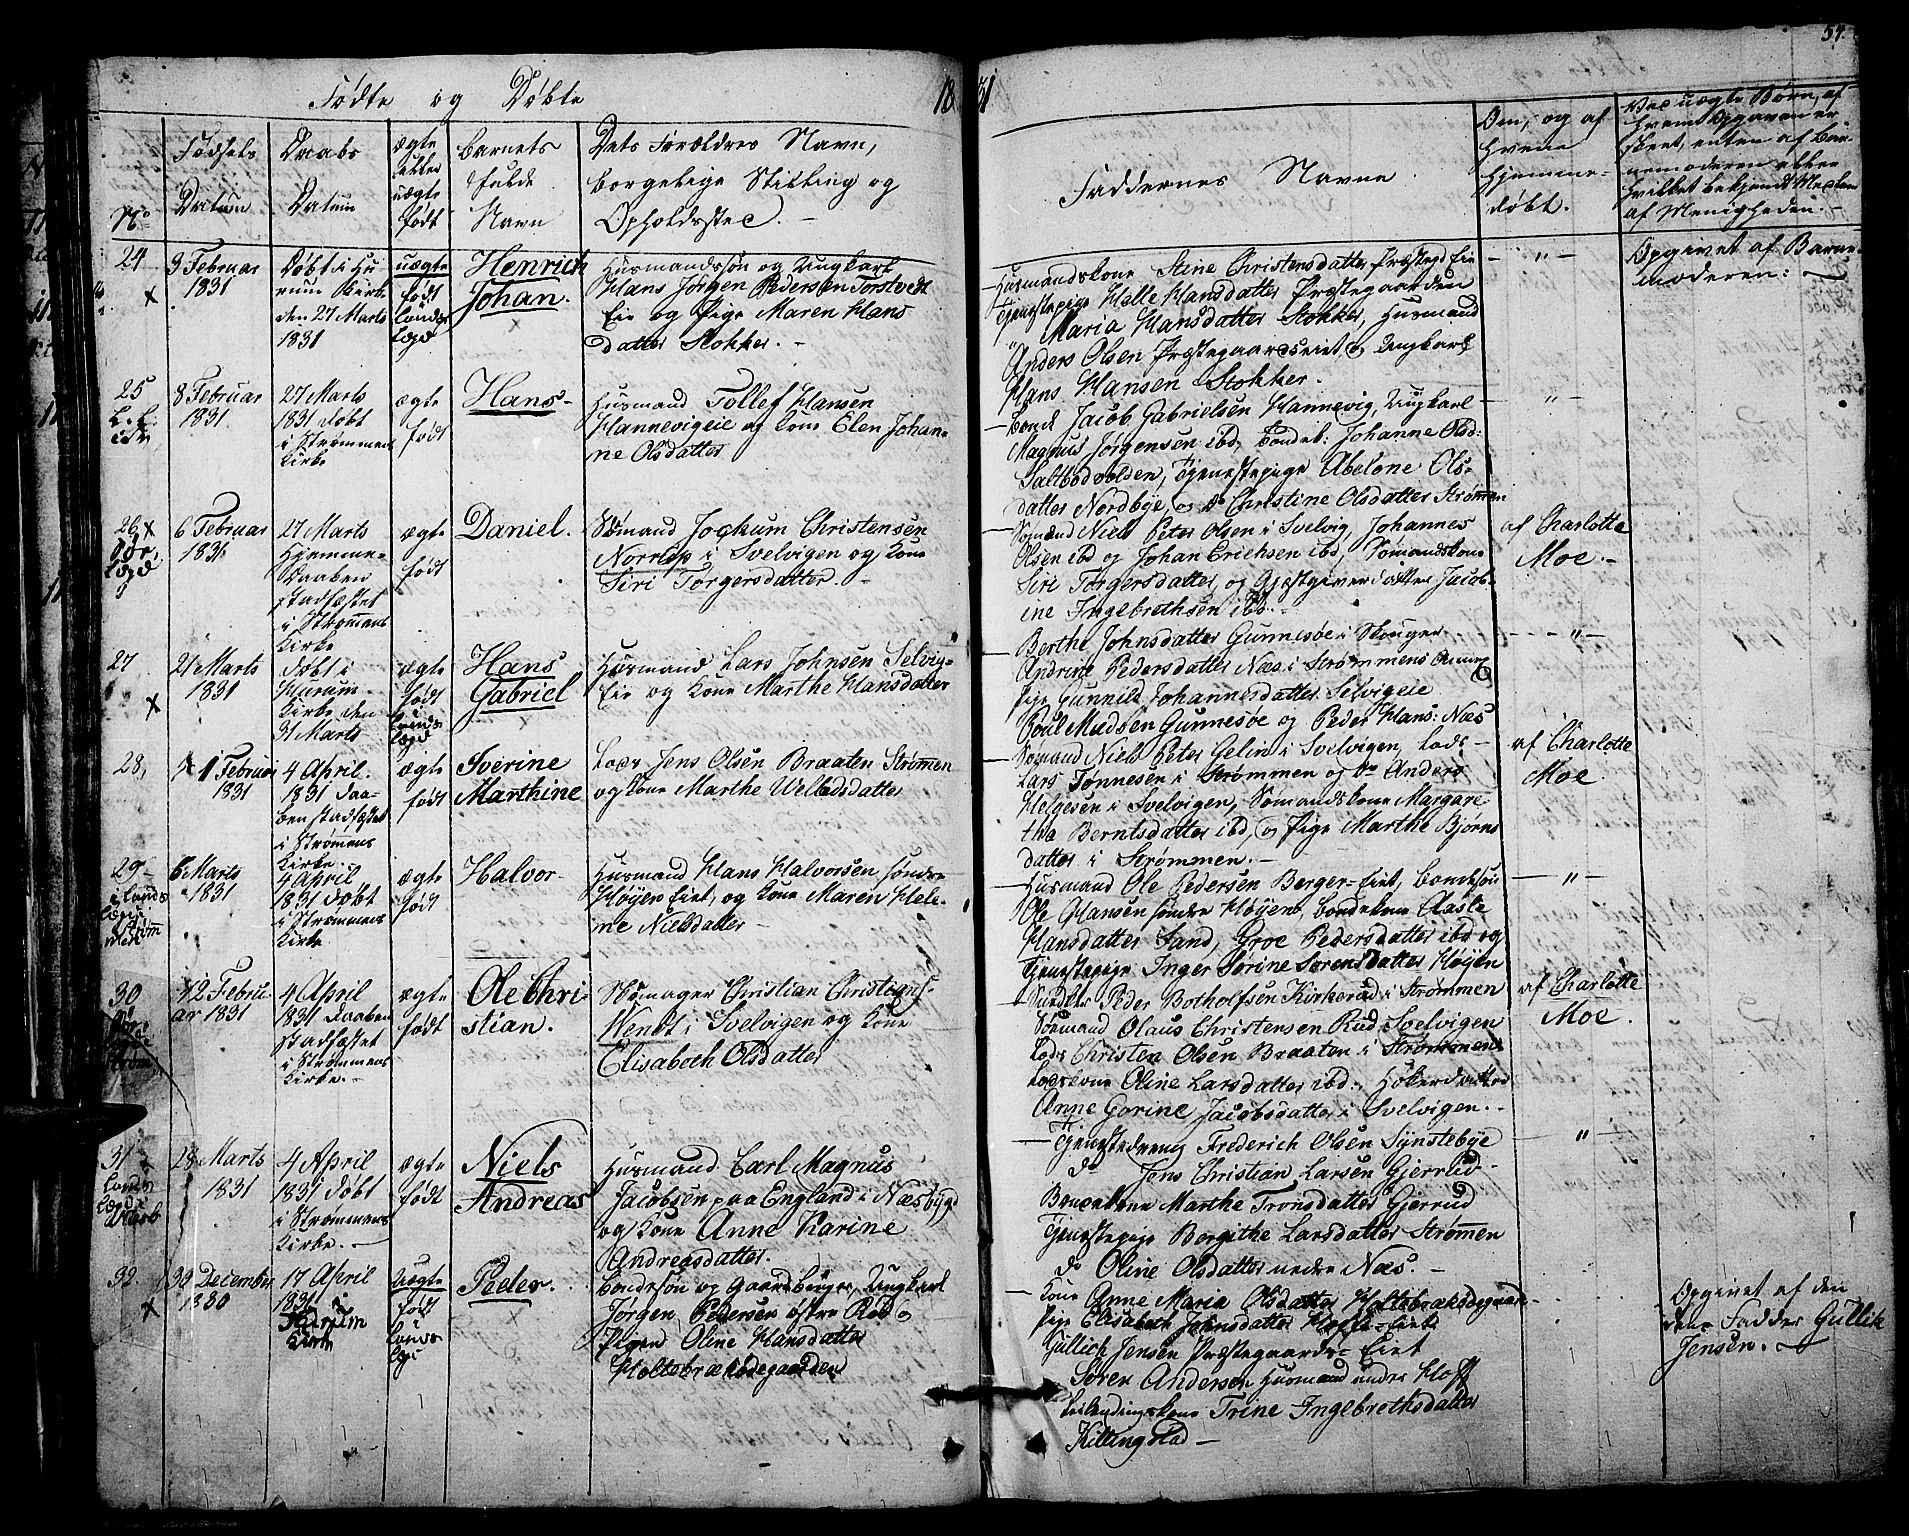 Fødte og Døbte 18
31
57.
No
Fødsels Datum
Daabs Datum
ægte eller uægte født
Barnets fulde Navn
Dets Forældres Navn, borgelige Stilling og Opholdssted.
Faddernes Navne
Om, og af hvem hjemme-døbt.
Ved uægte Børn, af hvem Opgaven er skeet, enten af Barnemoderen eller
af Menigheden.
24
9 Februar
1831
Døbt i Hurum Kirke
den 27 Marts
1831
uægte
født
Henrich
Johan.
Husmandssøn og Ungkarl
Hans Jørgen Pedersen Torstvedt
Eie og Pige Maren Hans
datter Stokker.
Husmandskone Stine Christensdatter Præstegd Eie
Tjenestepige Helle Hansdatter Præstegaarden
Maria Hansdatter Stokker, Husmand
Anders Olsen Præstegaardseiet og Ungkarl
Hans Hansen Stokker.
Opgivet af Barne-
moderen.
25
8 Februar
1831.
27 Marts
1831 døbt
i Strømmens
Kirke
ægte
født
Hans
Husmand Tollef Hansen
Hannevigeie og Kone Elen Johan-
ne Olsdatter
Bonde Jacob Gabrielsen Hannevig, Ungkarl
Magnus Jørgensen ibd, Johanne Olsd:
Tjenestepige Abelone Ols-
datter Nordbye, og Do Christine Olsdatter Strømmen
26
6 Februar
1831
27 Marts
Hjemme-
Daaben
stadfæstet
i Strømmens
Kirke
ægte
født
Daniel.
Sømand Jochum Christensen
Norrup i Svelvigen og Kone
Siri Torgersdatter.
Sømænd Niels Peter Olsen i Svelvig, Johannes
Olsen ibd og Johan Erichsen ibd, Sømandskone
Siri Torgersdatter og Gjæstgiverdatter Jacob-
ine Ingebrethsen ibd.
af Charlotte
Moe.
27
21 Marts
1831
Døbt i
Hurum
Kirke den
31 Marts
ægte
født
i
Landet
Hans
Gabriel
Husmand Lars Johnsen Selvig-
Eie og Kone Marthe Hansdatter
Berthe Johnsdatter Gunnesøe i Skouger
Andrine Pedersdatter Næs i Strømmens
Pige Gunnild Johannesdatter Selvigeie
Poul Madsen Gunnesøe og Peder Hans: Næs
28,
1 Februar
1831
4 April
1831 Daa-
ben stadfæstet
i Strømmens
Kirke.
ægte
født
Sverine
Marthine
Lods Jens Olsen Braaten Strømmen
og Kone Marthe Welladsdatter
Sømand Niels Peter Gelin i Svelvigen, Lods
Lars Tønnesen i Strømmen og Do Anders
Helgesen i Svelvigen, Sømandskone Margare
tha Berntsdatter ibd, og Pige Marthe Bjørns
datter i Strømmen.
af Charlotte
Moe
29
6 Marts
1831
4 April
1831 døbt
i Strømmens
Kirke
ægte
født
Halvor
Husmand Hans Halvorsen søndre
Høyen Eiet, og Kone Maren Hele-
ne Nielsdatter
Husmand Ole Pedersen Berger-Eiet, Bondesøn
Ole Hansen søndre Høyen, Bondekone Aaste
Hansdatter Sand, Groe Pedersdatter ibd og
Tjenestepige Inger Sørine Sørensdatter Høyen
30
12 Febru-
ar 1831
4 April
1831 Daaben
stadfæstet
i Strømmens
Kirke.
ægte
født
Ole Chri-
stian.
Skomager Christian Christians:
Wendt i Svelvigen og Kone
Elisabeth Olsdatter
Peder Botholfsen Kirkerud i Strømmen
Sømand Olaus Christensen Rud Svelvigen
Lods Christen Olsen Braaten i Strømmens
Lodskone Oline Larsdatter ibd:, Høkerdatter
Anne Gorine Jacobsdatter i Svelvigen.
af Charlotte
Moe.
31
28 Marts
1831
4 April
1831 døbt
i Strømmens
Kirke.
ægte
født
Niels
Andreas
Husmand Carl Magnus
Jacobsen paa England i Næsbygd
og Kone Anne Karine
Andreasdatter.
Tjenestedreng Frederich Olsen Synstebye
do Jens Christian Larsen Gjerrud
Bondekone Marthe Tronsdatter Gjerrud
Tjenestepige Bergithe Larsdatter Strømmen
do Oline Olsdatter nedre Næs.
32
30 December
1830
17 April
1831 i
Hurum
Kirke
Uægte
født
i
Peder
Bondesøn og Gaardbruger, Ungkarl
Jørgen Pedersen østre Rød og
Pigen Oline Hansdatter
Holtebrækkegaarden
Kone Anne Maria Olsdatter Holtebrækkegaarden
Pige Elisabeth Johnsdatter Eiet
Gullich Jensen Præstegaards-Eiet
Søren Andersen Husmand under Hoff
Trine Ingebrethsdatter
Killingstad
Opgivet af den
Fadder Gullik
Jensen.